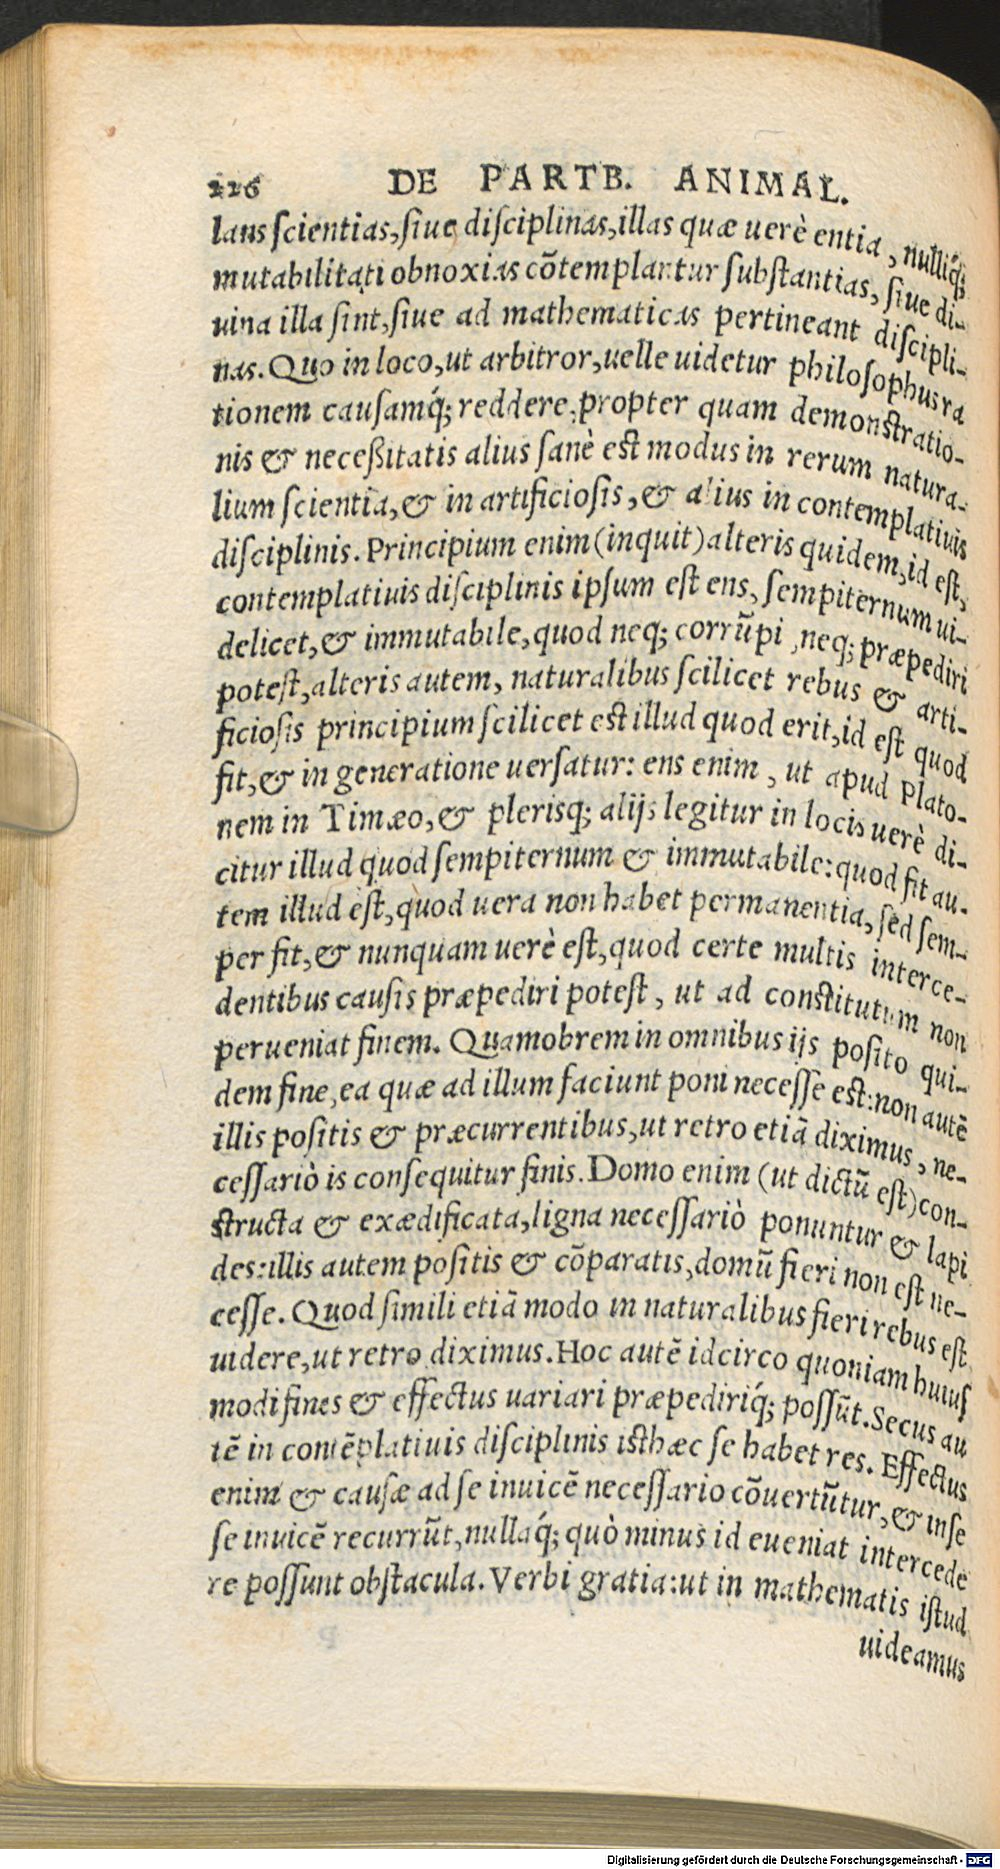 226 DE PARTB. ANIMAL.
lans scientias, siue disciplinas, illas quæ uerè entia, nulliq́;
mutabilitati obnoxias cõtemplantur substantias, siue di-
uina illa sint, siue ad mathematicas pertineant discipli-
nas. Quo in loco, ut arbitror, uelle uidetur philosophus ra
tionem causamq́; reddere, propter quam demonstratio-
nis & neceßitatis alius sanè est modus in rerum natura-
lium scientia, & in artificiosis, & alius in contemplatiuis
disciplinis. Principium enim (inquit) alteris quidem, id est,
contemplatiuis disciplinis ipsum est ens, sempiternum ui-
delicet, & immutabile, quod neq; corrũpi, neq; præpediri
potest, alteris autem, naturalibus scilicet rebus & arti-
ficiosis principium scilicet est illud quod erit, id est quod
fit, & in generatione uersatur: ens enim, ut apud Plato-
nem in Timæo, & plerisq; alijs legitur in locis uerè di-
citur illud quod sempiternum & immutabile: quod fit au-
tem illud est, quod uera non habet permanentia, sed sem-
per fit, & nunquam uerè est, quod certe multis interce-
dentibus causis præpediri potest, ut ad constitutum non
perueniat finem. Quamobrem in omnibus ijs posito qui-
dem fine, ea quæ ad illum faciunt poni necesse est: non autẽ
illis positis & præcurrentibus, ut retro etiã diximus, ne-
cessariò is consequitur finis. Domo enim (ut dictũ est) con-
structa & exædificata, ligna necessariò ponuntur & lapi
des: illis autem positis & cõparatis, domũ fieri non est ne-
cesse. Quod simili etiã modo in naturalibus fieri rebus est
uidere, ut retro diximus. Hoc autẽ idcirco quoniam huius
modi fines & effectus uariari præpediriq́; possũt. Secus au
tẽ in contẽplatiuis disciplinis isthæc se habet res. Effectus
enim & causæ ad se inuicẽ necessario cõuertũtur, & in se
se inuicẽ recurrũt, nullaq́; quò minus id eueniat intercede
re possunt obstacula. Verbi gratia: ut in mathematis istud
uideamus
Digitalisierung gefördert durch die Deutsche Forschungsgemeinschaft - DFG